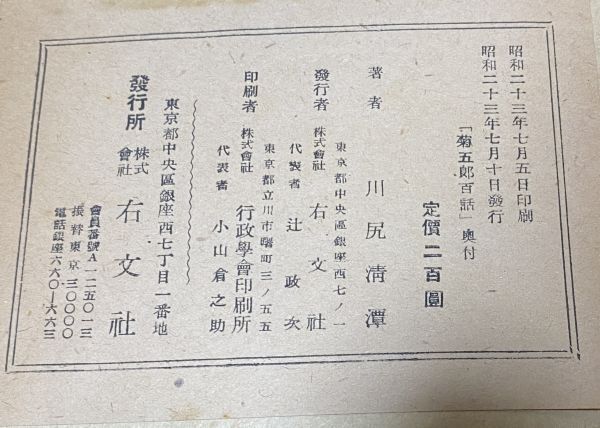 昭和二十三年七月五日印刷
昭和二十三年七月十日發行
「菊五郎百話」奥付
定價二百圓
著者 川尻清潭
東京都中央區銀座西七ノ一
發行者 株式會社 右文社
代表者 辻政次
東京都立川市曙町三ノ五五
印刷者 株式會社 行政學會印刷所
代表者 小山倉之助
東京都中央區銀座西七丁目一番地
發行所 株式會社 右文社
會員番號A一二五〇一三
振替東京三〇〇〇〇
電話銀座六六〇一・六六三